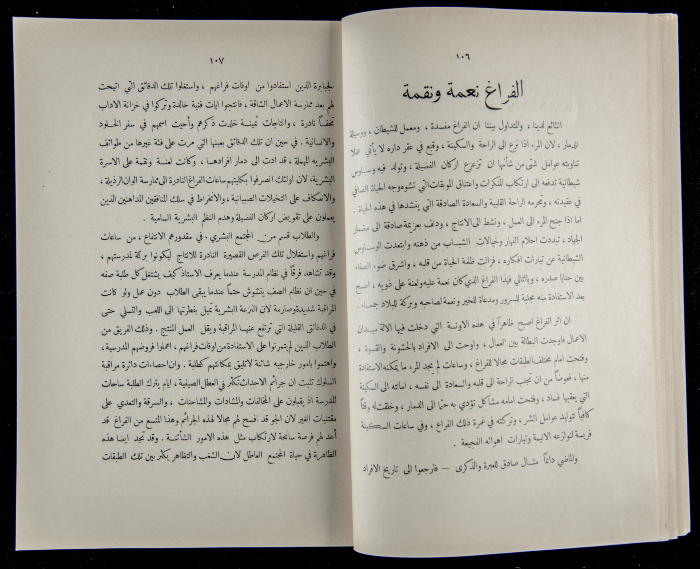 ١٠٦
الفراغ نعمة ونقمة
الشائع لدينا ، والمتداول بيننا ان الفراغ مفسدة ، ومعمل للشيطان ، ووسيلة
للدمار ، لان المرء اذا نزع الى الراحة والسكينة ، وقبع في عقر داره لا يأتي عملا
تناوبته عوامل شتى من شأنها ان تزعزع اركان الفضيلة ، وتولد فيه وساوس
شيطانية تدفعه الى ارتكاب المنكرات واعتناق الموبقات التي تشوه وجه الحياة الصافي
في عقيدته ، وتحرمه الراحة القلبية والسعادة الصادقة التي ينشدها في هذه الحياة .
اما اذا جنح المرء الى العمل ، ونشط الى الانتاج ، ودلف بعزيمة صادقة الى مضمار
الجهاد ، تبددت احلام النهار وخيالات الشباب من ذهنه وابتعدت الوساوس
الشيطانية عن تيارات افكاره ، فزالت ظلمة الحياة من قلبه ، واشرق ضوء الصفاء
بين حنايا صدره ، وبالتالي فهذا الفراغ الذي كان نعمة عليه ولعنة على ذويه ، اصبح
بعد الاستفادة منه مجلبة للسرور ومدعاة للخير ونعمة لصاحبه وبركة للبلاد جمعاء .
ان اثر الفراغ اصبح ظاهراً في هذه الاونة التي دخلت فيها الالة ميدان
الاعمال فاوجدت البطالة بين العمال ، واوحت الى الافراد بالخشونة والقسوة ،
وفتحت امام مختلف الطبقات مجالا للفراغ ، وساعات لم يجد المرء ما يمكنه الاستفادة
منها ، فعوضاً من ان تجلب الراحة الى قلبه والسعادة الى نفسه ، امالته الى السكينة
التي يعقبها فساد ، وفتحت امامه مشاكل تؤدي به حتما الى الدمار ، وخلقت له وقتاً
كافياً لتوليد عوامل الشر ، وتركته في غمرة ذلك الفراغ ، وفي ساعات السكينة
فريسة لنوازعه الاثيمة وتيارات اهوائه الفجيعة .
والماضي دائماً مثال صادق للعبرة والذكرى — فارجعوا الى تاريخ الافراد
١٠٧
لجبابرة الذين استفادوا من اوقات فراغهم ، واستغلوا تلك الدقائق التي اتيحت
لهم بعد ممارسة الاعمال الشاقة ، فانتجوا ايات فنية خالدة وتركوا في خزانة الاداب
تحفاً نادرة ، ونتاجات ثمينة خلدت ذكرهم وأحيت اسمهم في سفر الخلود
والانسانية . في حين ان تلك الدقائق بعينها التي مرت على فئة غيرها من طوائف
البشرية المهملة ، قد ادت الى دمار افرادها ، وكانت لعنة ونقمة على الاسرة
البشرية ، لان اولئك انصرفوا بكليتهم ساعات الفراغ النادرة الى ممارسة الوان الرذيلة ،
والانعكاف على التخيلات الصبيانية ، والانخراط في سلك المنافقين المداهنين الذين
يعملون على تقويض اركان الفضيلة وهدم النظم البشرية السامية .
والطلاب قسم من المجتمع البشري . في مقدورهم الانتفاع ، من ساعات
فراغهم واستغلال تلك الفرص القصيرة النادرة للانتاج ليكونوا بركة لمدرستهم ،
وقد تشاهد فرقاً في نظام المدرسة عندما يعرف الاستاذ كيف يشتغل كل طلبة صفه
في حين ان نظام الصف يتشوش حتماً عندما يبقى الطلاب دون عمل ولو كانت
المراقبة شديدة وصارمة لان النزعة البشرية تميل بفطرتها الى اللعب والتسلي حتى
في الدقائق القليلة التي ترتفع عنها المراقبة ويقل العمل المنتج . وذلك الفريق من
الطلاب الذين لم يتمرنوا على الاستفادة من اوقات فراغهم ، اهملوا فروضهم المدرسية ،
واهتموا بامور خارجية شائنة لا تليق بمكانتهم كطلبة . وان احصاءات دائرة مراقبة
السلوك تثبت ان جرائم الاحداث تكثر في العطل الصيفية ، ايام يترك الطلبة ساحات
للمدرسة اذ يقبلون على المخالفات والمشادات والمشاحنات ، والسرقة والتعدي على
مقتنيات الغير لان الجو قد افسح لهم مجالا لهذه الجرائم وهذا المتسع من الفراغ قد
أعد لهم فرصة سانحة لارتكاب مثل هذه الامور الشائنة . وقد تجد ايضا هذه
الظاهرة في حياة المجتمع العاطل لان الشغب والتظاهر يكثر بين تلك الطبقات